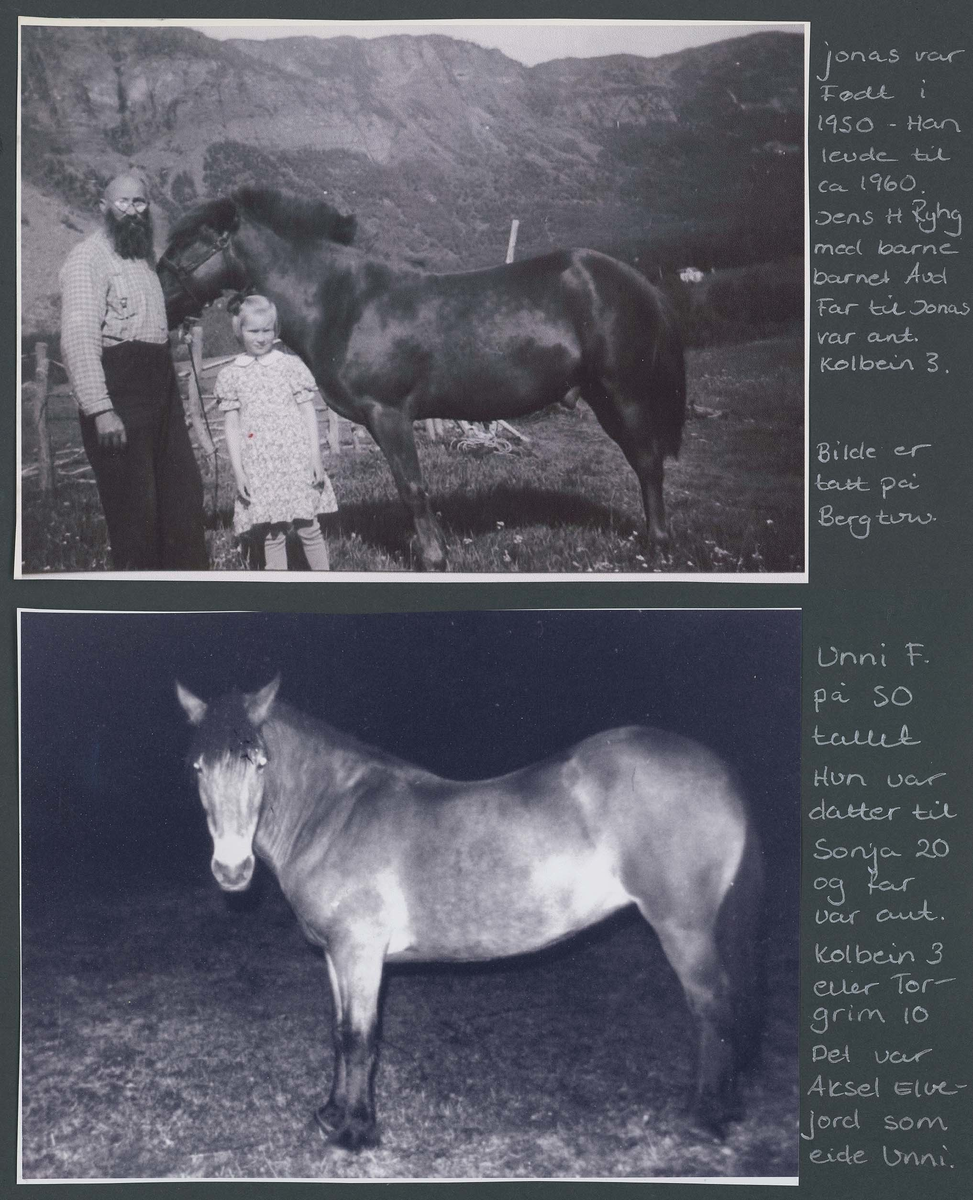 Jonas var
Født i
1950 - Han
levde til
ca 1960.
Jens H Ryhg
med barne
barnet Aud
Far til Jonas
var ant.
Kolbein 3.
Bilde er
tatt på
Unni F.
på 50
tallet
Hun var
datter til
Sonja 20
og far
var ant.
Kolbein 3
eller Tor-
grim 10
Det var
Aksel Elve-
jord som
eide Unni.